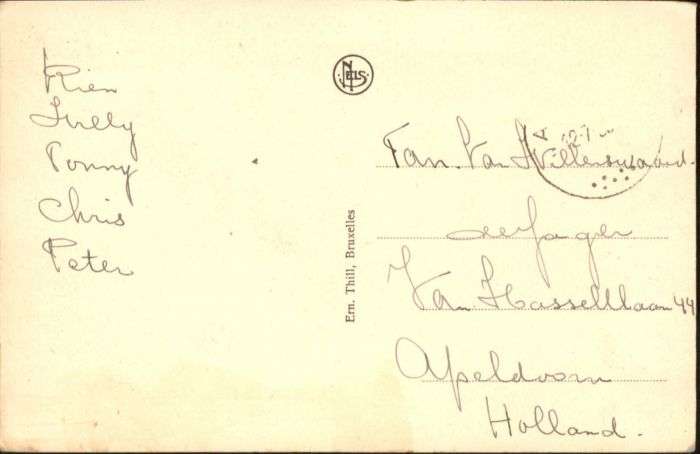 Rien
Willy
Tonny
Chris
Peter
NELS
Ern. Thill, Bruxelles
Fam. Van Willenswaard.
de Jager
Van Hasseltlaan 44
Apeldoorn
Holland.